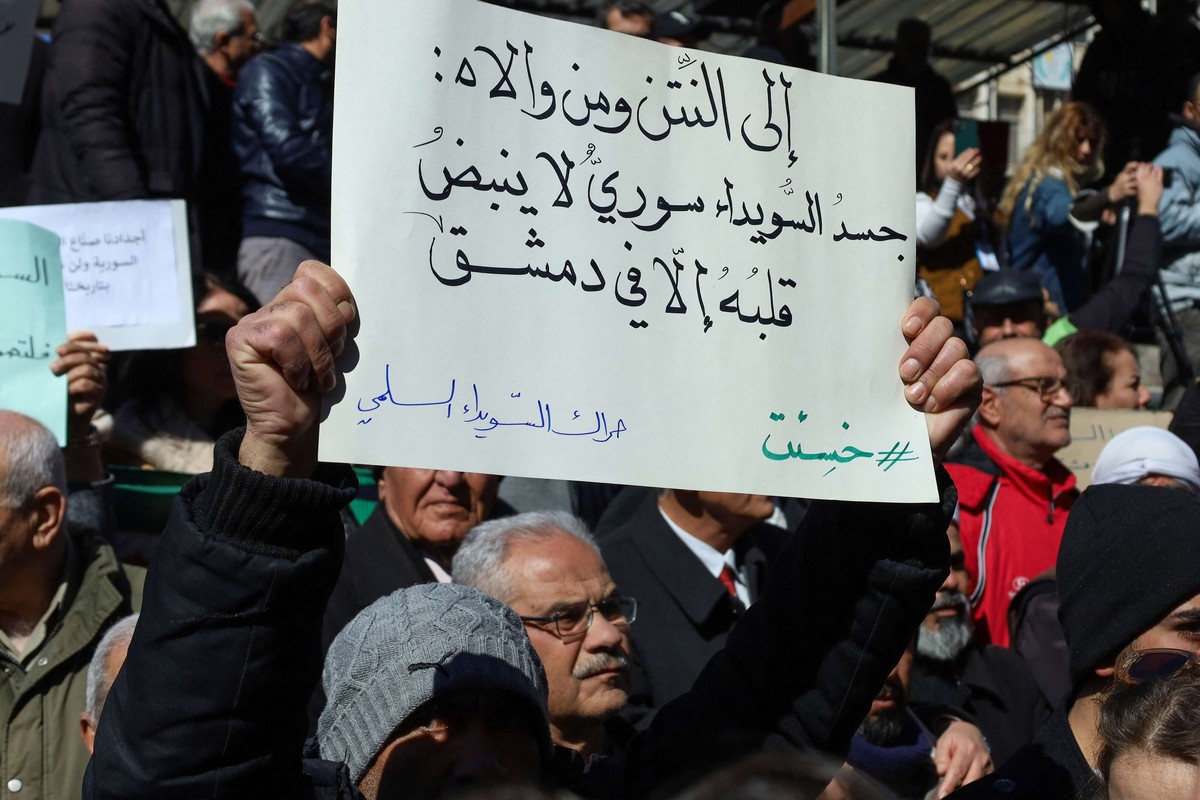 إلى النَّتن ومن والاه:
جسدُ السُّويداء سوريٌّ لا ينبضُ
قلبُهُ إلّا في دمشق
حراك السّويداء السلمي
#خَسِئت
أجدادنا صنّاع
السورية ولن
بتاريخنا